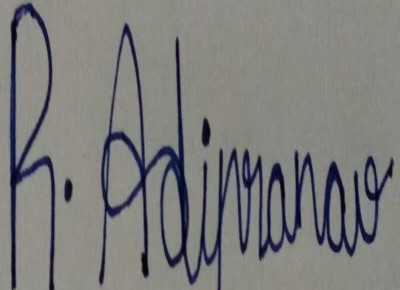 R. Adipranav